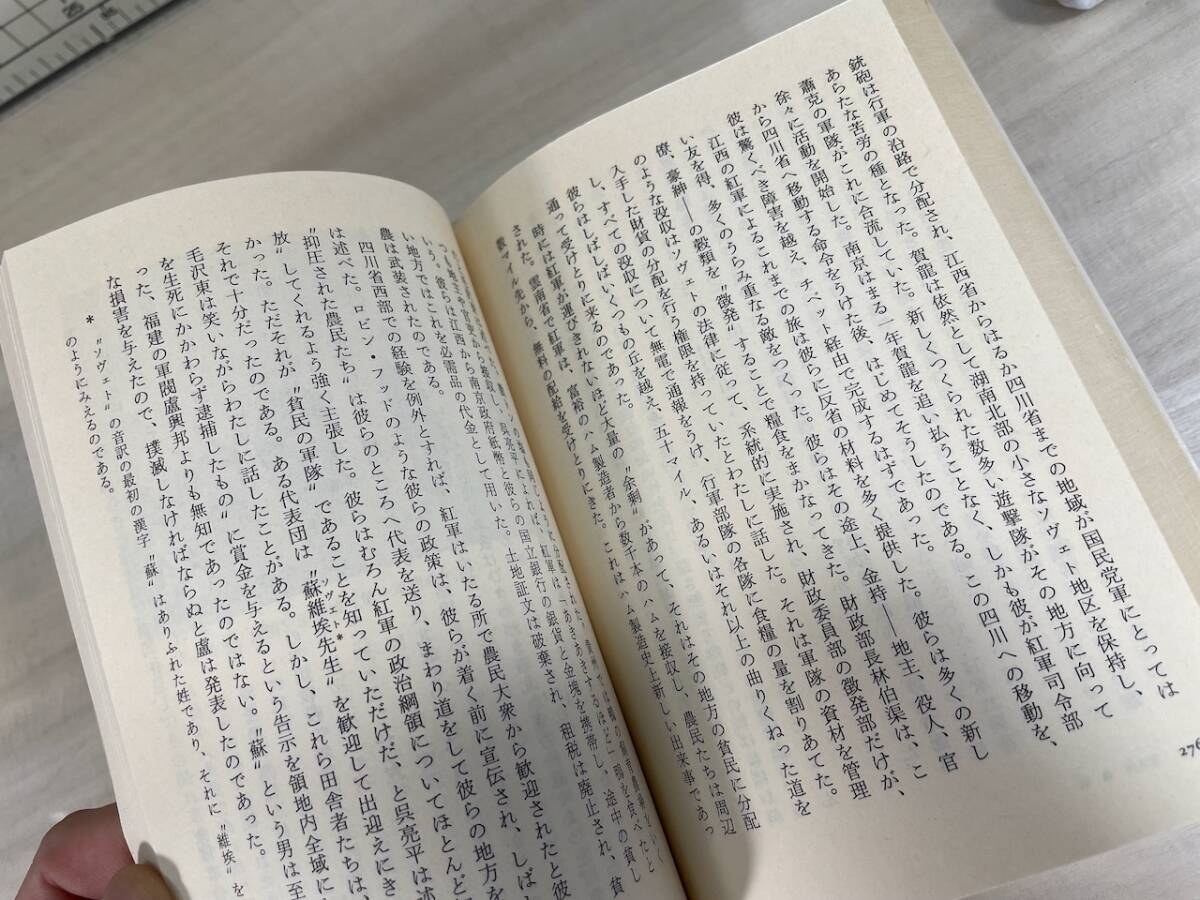 銃砲は行軍の沿路で分配され、江西省からはるか四川省までの地域が国民党軍にとっては
あらたな苦労の種となった。賀龍は依然として湖南北部の小さなソヴェト地区を保持し、
蕭克の軍隊がこれに合流していた。新しくつくられた数多い遊撃隊がその地方に向って
徐々に活動を開始した。南京はまる一年賀龍を追い払うことなく、しかも彼が紅軍司令部
から四川省へ移動する命令をうけた後、はじめてそうしたのである。この四川への移動を、
彼は驚くべき障害を越え、チベット経由で完成するはずであった。
江西の紅軍によるこれまでの旅は彼らに反省の材料を多く提供した。彼らは多くの新し
い友を得、多くのうらみ重なる敵をつくった。彼らはその途上、金持――地主、役人、官
僚、豪紳――の穀類を〝徴発〟することで糧食をまかなってきた。財政部長林伯渠は、こ
のような没収はソヴェトの法律に従って、系統的に実施され、財政委員部の徴発部だけが、
入手した財貨の分配を行う権限を持っていたとわたしに話した。それは軍隊の資材を管理
し、すべての没収について無電で通報をうけ、行軍部隊の各隊に食糧の量を割りあてた。
彼らはしばしばいくつもの丘を越え、五十マイル、あるいはそれ以上の曲りくねった道を
通って受けとりに来るのであった。
時には紅軍が運びきれないほど大量の〝余剰〟があって、それはその地方の貧民に分配
された。雲南省で紅軍は、富裕のハム製造者から数千本のハムを接収し、農民たちは周辺
数マイル先から、無料の配給を受けとりにきた。これはハム製造史上新しい出来事であっ
276
つ地主や官吏から徴収し、呉亮平によれば、紅軍は「あきあきするほど」鴨を食べたと
いう。彼らは江西から南京政府紙幣と彼らの国立銀行の銀貨と金塊を携帯し、途中の貧し
い地方ではこれを必需品の代金として用いた。土地証文は破棄され、租税は廃止され、貧
農は武装されたのである。
四川省西部での経験を例外とすれば、紅軍はいたる所で農民大衆から歓迎されたと彼
は述べた。ロビン・フッドのような彼らの政策は、彼らが着く前に宣伝され、しば
〝抑圧された農民たち〟は彼らのところへ代表を送り、まわり道をして彼らの地方を
放〟してくれるよう強く主張した。彼らはむろん紅軍の政治綱領についてほとんど
かった。ただそれが、〝貧民の軍隊〟であることを知っていただけだ、と呉亮平は述
それで十分だったのである。ある代表団は〝蘇維埃先生〟ソヴェト*を歓迎して出迎えにき
毛沢東は笑いながらわたしに話したことがある。しかし、これら田舎者たちは、
を生死にかかわらず逮捕したもの〟に賞金を与えるという告示を領地内全域に
った、福建の軍閥盧興邦よりも無知であったのではない。〝蘇〟という男は至
な損害を与えたので、撲滅しなければならぬと盧は発表したのであった。
* 〝ソヴェト〟の音訳の最初の漢字〝蘇〟はありふれた姓であり、それに〝維埃〟を
のようにみえるのである。